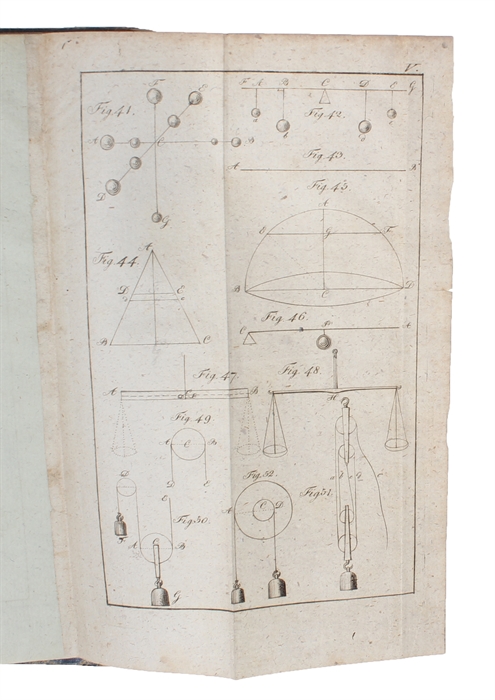 V.
Fig. 41.
F
E
A
C
B
D
G
F A B C D E G
Fig. 42.
a
b
d
e
Fig. 43.
A B
Fig. 44.
A
D E
B C
Fig. 45.
A
E G F
B C D
Fig. 46.
C A
Fig. 47.
A B
Fig. 48.
H
Fig. 49
A C B
D E
Fig. 50.
D
F
E
A C B
G
Fig. 52.
A C D
Fig. 51.